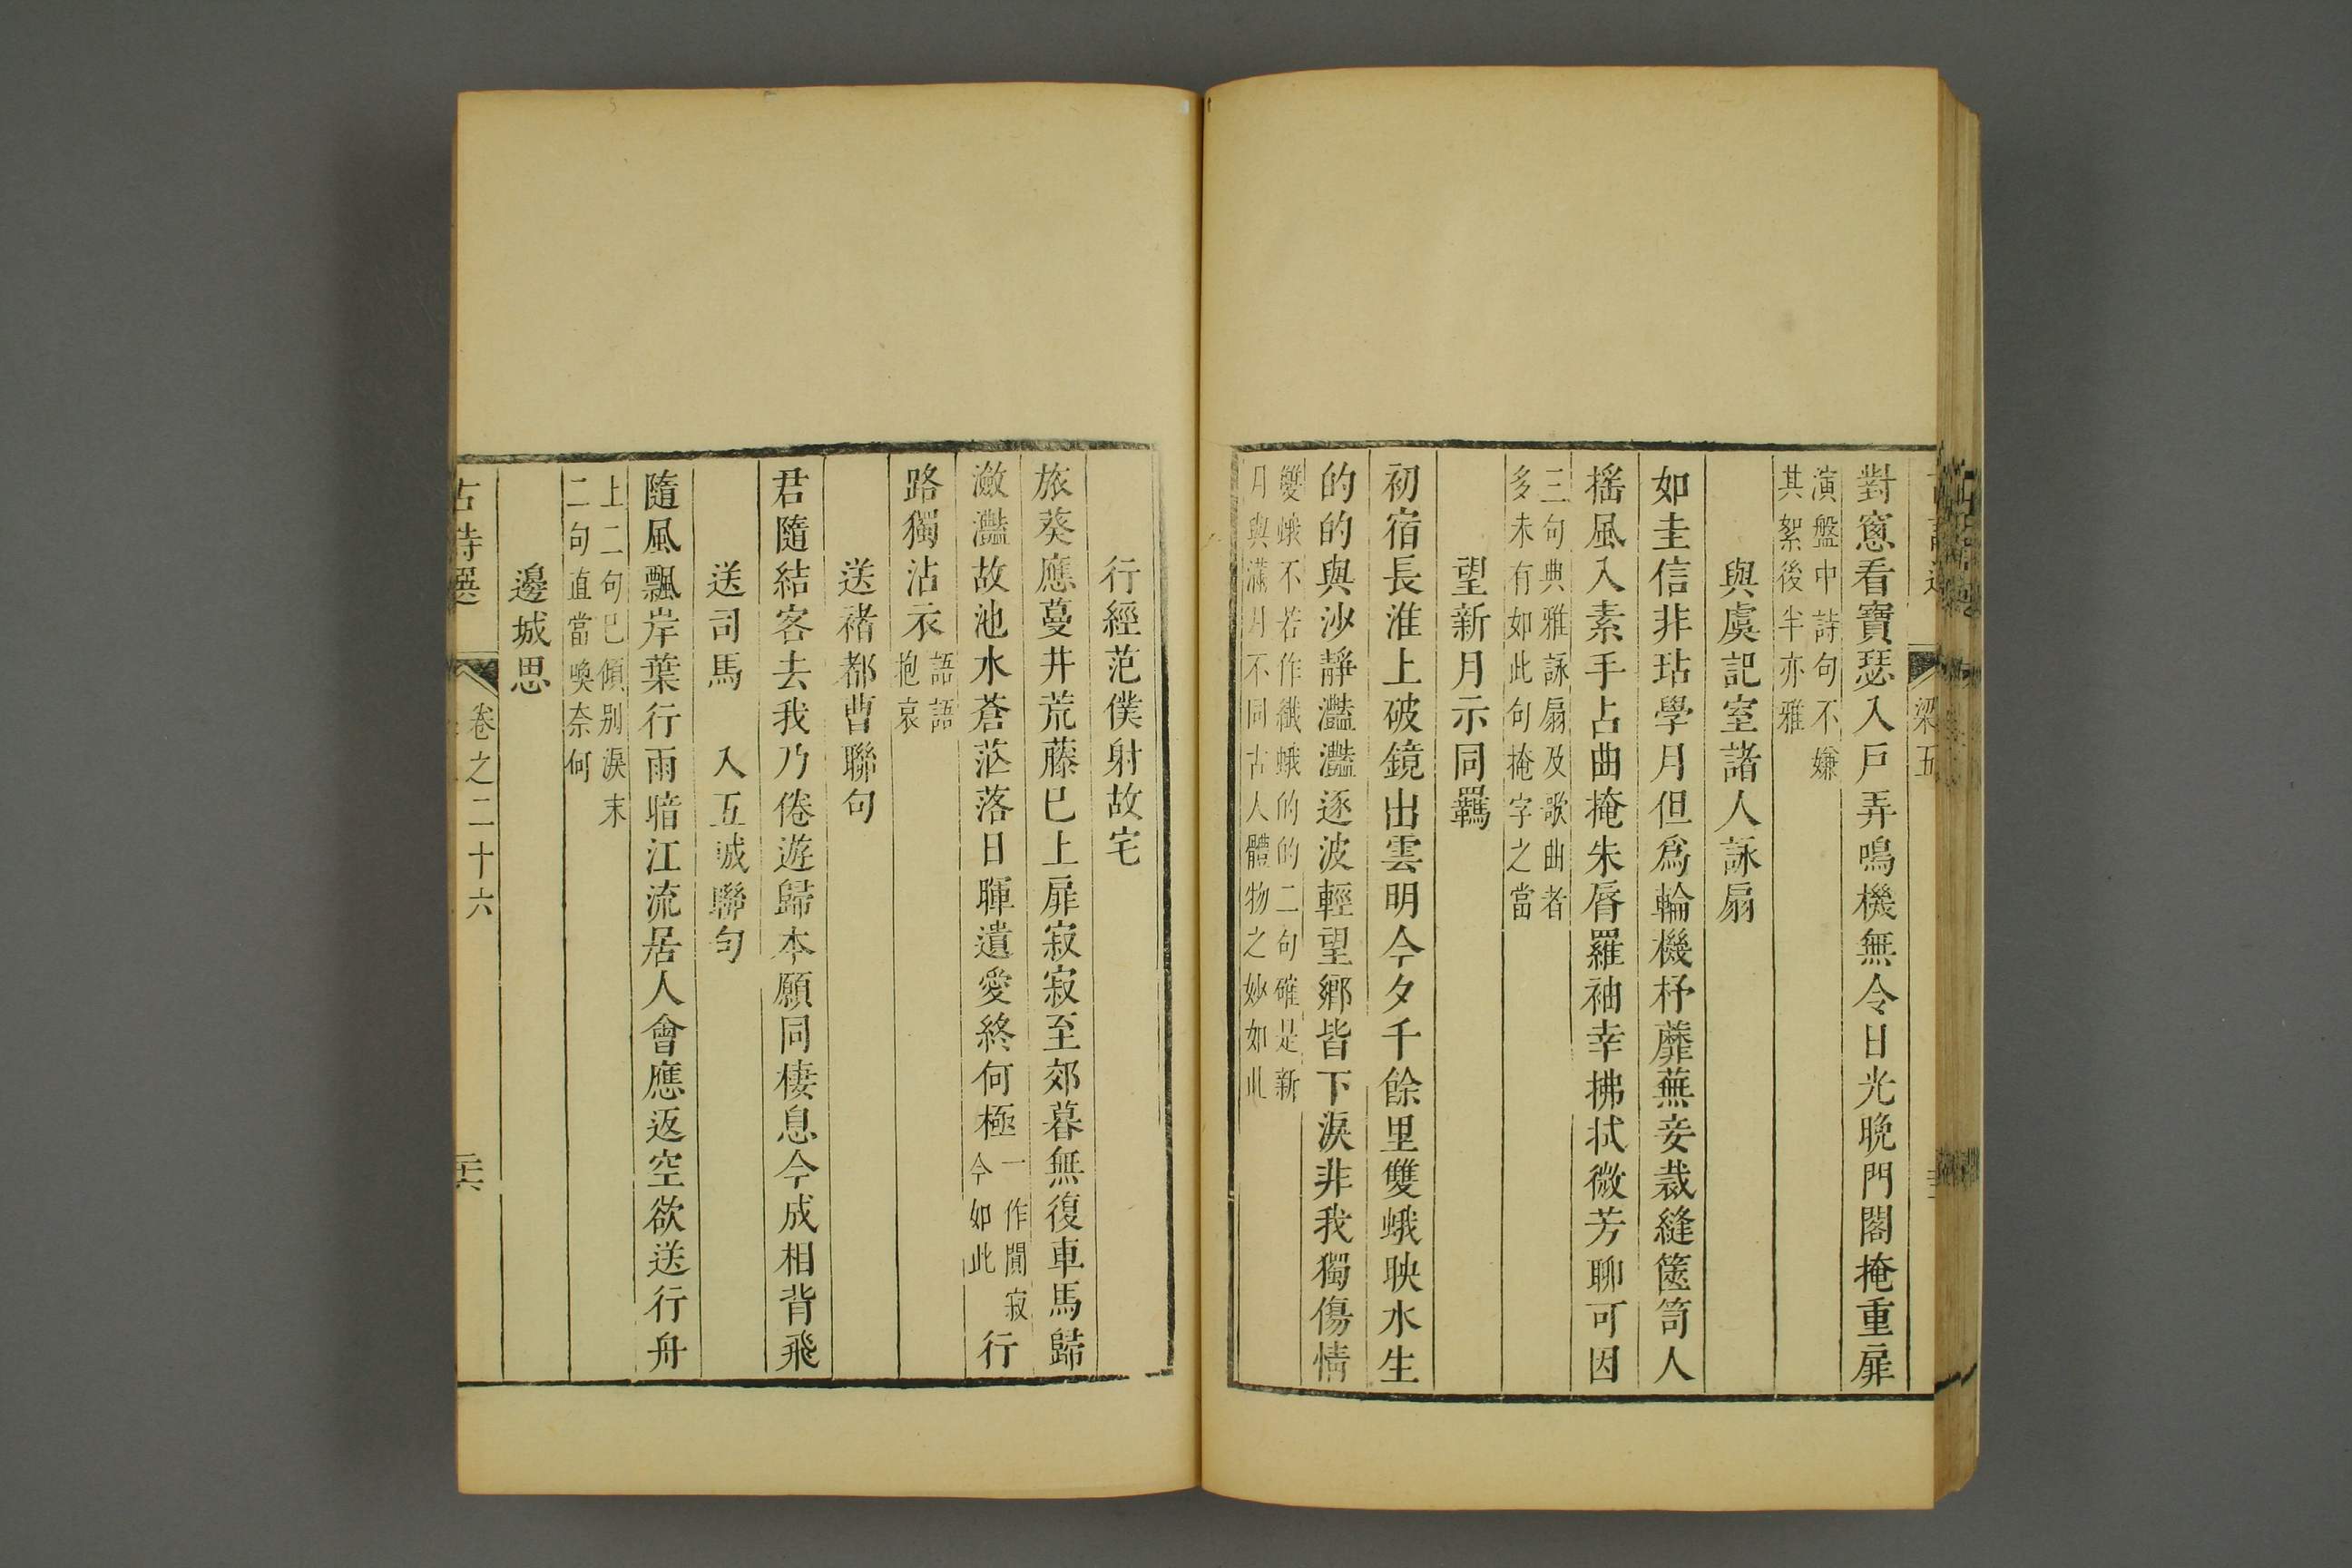 梁五
對窻看寶瑟入戶弄鳴機無令日光晚門閣掩重扉
演盤中詩句不嫌
其絮後半亦雅
與虞記室諸人詠扇
如圭信非玷學月但爲輪機杼蘼蕪妾裁縫篋笥人
揺風入素手占曲掩朱脣羅袖幸拂拭微芳聊可因
三句典雅詠扇及歌曲者
多未有如此句掩字之當
望新月示同羈
初宿長淮上破鏡出雲明今夕千餘里雙蛾映水生
的的與沙靜灩灩逐波輕望鄉皆下淚非我獨傷情
雙蛾不若作纖蛾的的二句確是新
月與滿月不同古人體物之妙如此
行經范僕射故宅
旅葵應蔓井荒藤巳上扉寂寂至郊暮無復車馬歸
瀲灩故池水蒼茫落日暉遺愛終何極一作閴寂
今如此行
路獨沾衣語語
抱哀
送褚都曹聯句
君隨結客去我乃倦遊歸本願同棲息今成相背飛
送司馬　入五誠聯句
隨風飄岸葉行雨暗江流居人會應返空欲送行舟
上二句巳傾別淚末
二句直當喚奈何
邊城思
古詩選　卷之二十六